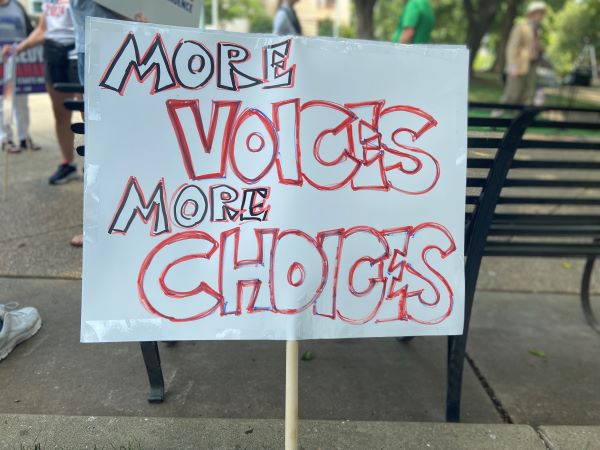 MORE
VOICES
MORE
CHOICES